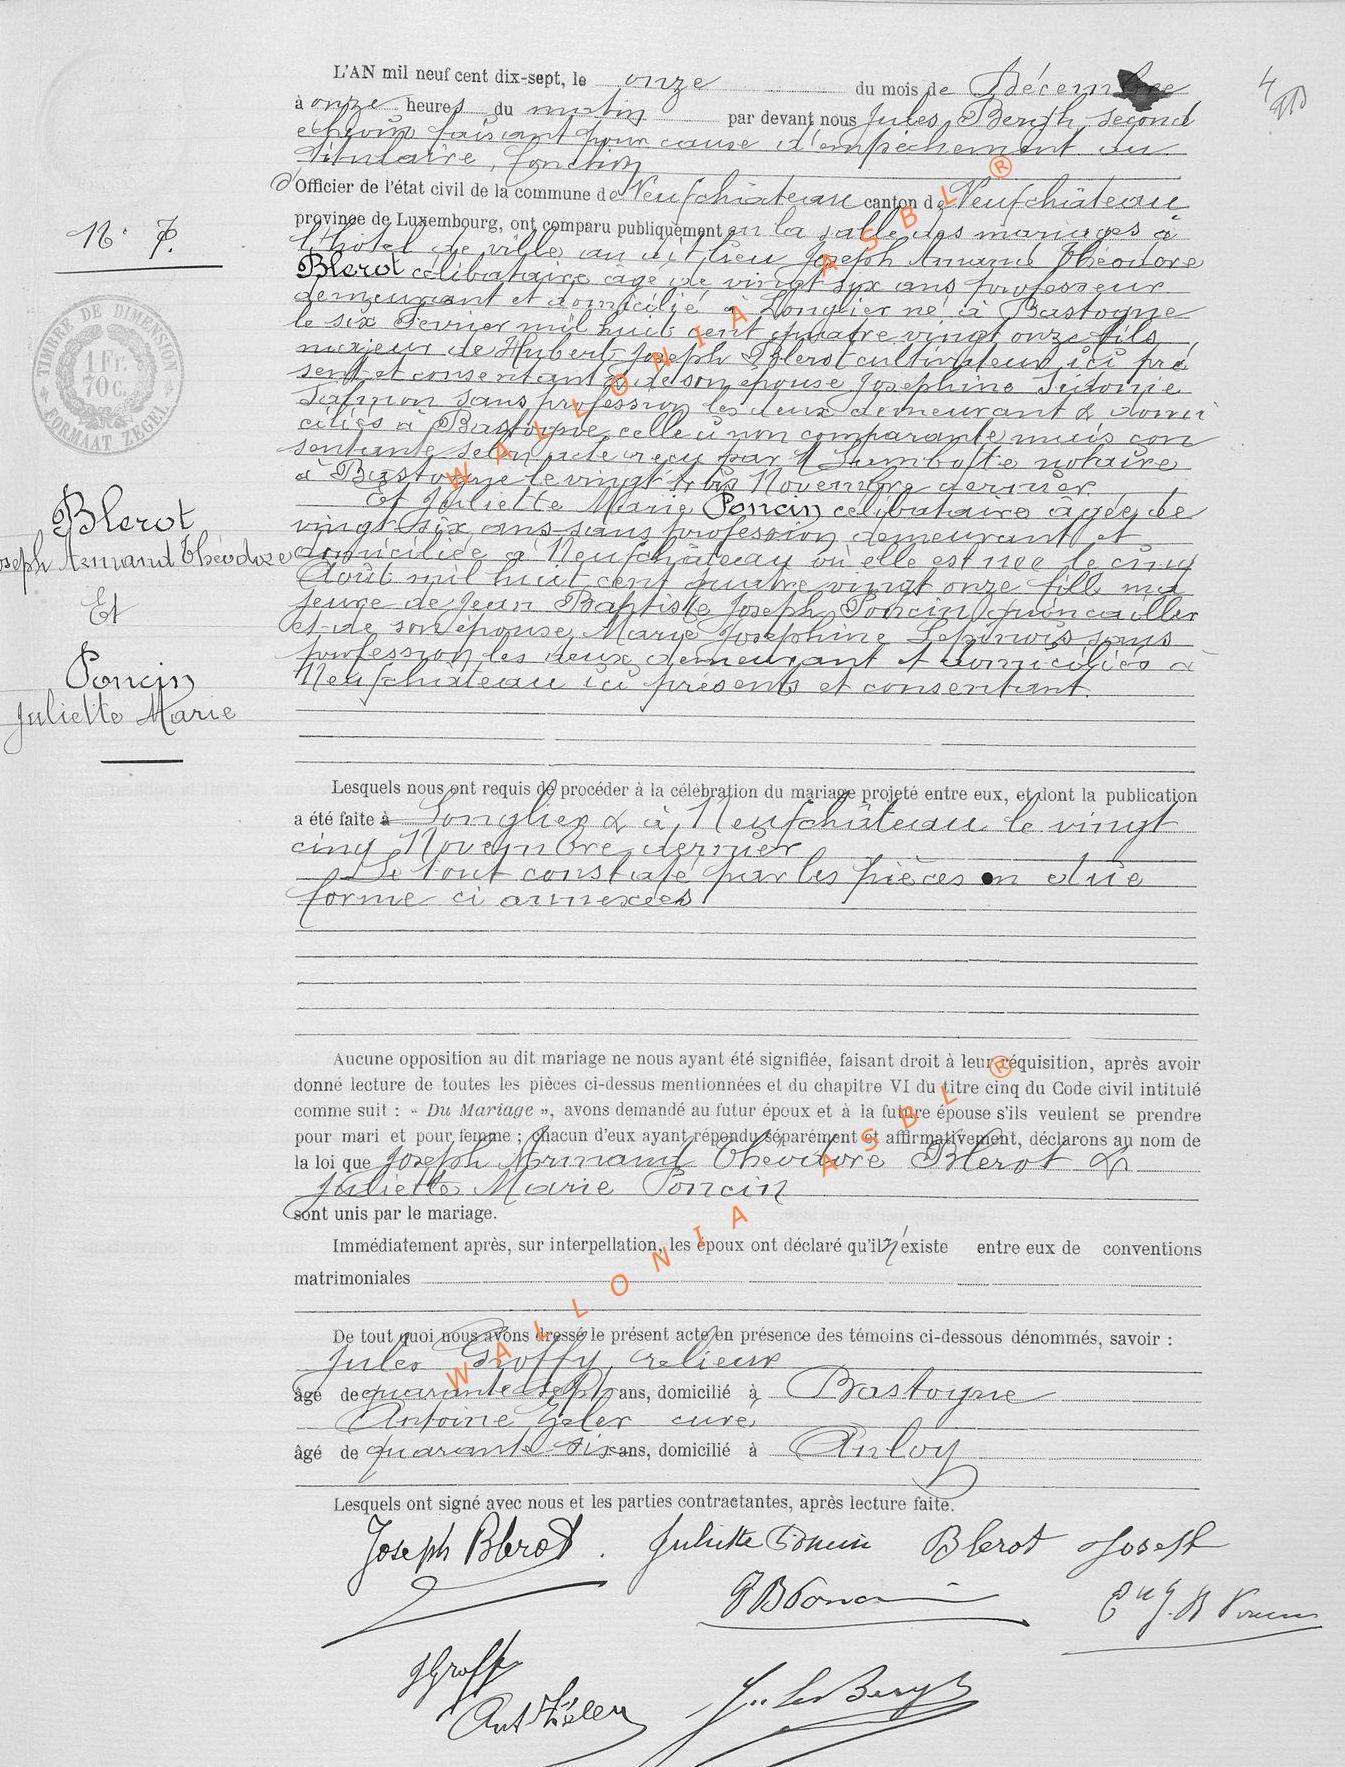 L'AN mil neuf cent dix-sept, le onze du mois de Décembre
à onze heures du matin par devant nous Jules Bergh, second
échevin faisant pour cause d'empêchement du
titulaire, fonction
d'Officier de l'état civil de la commune de Neufchâteau canton de Neufchâteau
province de Luxembourg, ont comparu publiquement en la salle des mariages à
l'hôtel de ville au dit lieu Joseph Armand Théodore
Blerot célibataire âgé de vingt six ans professeur
demeurant et domicilié à Longlier né à Bastogne
le six Février mil huit cent quatre vingt onze fils
majeur de Hubert Joseph Blerot cultivateur ici pré
sent et consentant & de son épouse Joséphine Sidonie
sans profession les deux demeurant & domi
ciliés à Bastogne celle ci non comparante mais con
sentante selon acte reçu par notaire
à Bastogne le vingt trois Novembre dernier
Et Juliette Marie Poncin célibataire âgée de
vingt six ans sans profession demeurant et
domiciliée à Neufchâteau où elle est née le cinq
Août mil huit cent quatre vingt onze fille ma
jeure de Jean Baptiste Joseph Poncin quincailler
et de son épouse Marie Joséphine Lepinois sans
profession les deux demeurant et domiciliés à
Neufchâteau ici présents et consentant.
No. 7.
TIMBRE DE DIMENSION
1 Fr.
70 c.
FORMAAT ZEGEL
Blerot
Joseph Armand Théodore
Et
Poncin
Juliette Marie
Lesquels nous ont requis de procéder à la célébration du mariage projeté entre eux, et dont la publication
a été faite à Longlier & à Neufchâteau le vingt
cinq Novembre dernier
Le tout constaté par les pièces en due
forme ci annexées
Aucune opposition au dit mariage ne nous ayant été signifiée, faisant droit à leur réquisition, après avoir
donné lecture de toutes les pièces ci-dessus mentionnées et du chapitre VI du titre cinq du Code civil intitulé
comme suit : « Du Mariage », avons demandé au futur époux et à la future épouse s'ils veulent se prendre
pour mari et pour femme ; chacun d'eux ayant répondu séparément et affirmativement, déclarons au nom de
la loi que Joseph Armand Théodore Blerot &
Juliette Marie Poncin
sont unis par le mariage.
Immédiatement après, sur interpellation, les époux ont déclaré qu'il n'existe entre eux de conventions
matrimoniales
De tout quoi nous avons dressé le présent acte en présence des témoins ci-dessous dénommés, savoir :
Jules Groffy, relieur
âgé de quarante sept ans, domicilié à Bastogne
Antoine curé
âgé de quarante six ans, domicilié à Anloy
Lesquels ont signé avec nous et les parties contractantes, après lecture faite.
Joseph Blerot. Juliette Poncin Blerot Joseph
JB Poncin
WALLONIA ASBL ®
WALLONIA ASBL ®